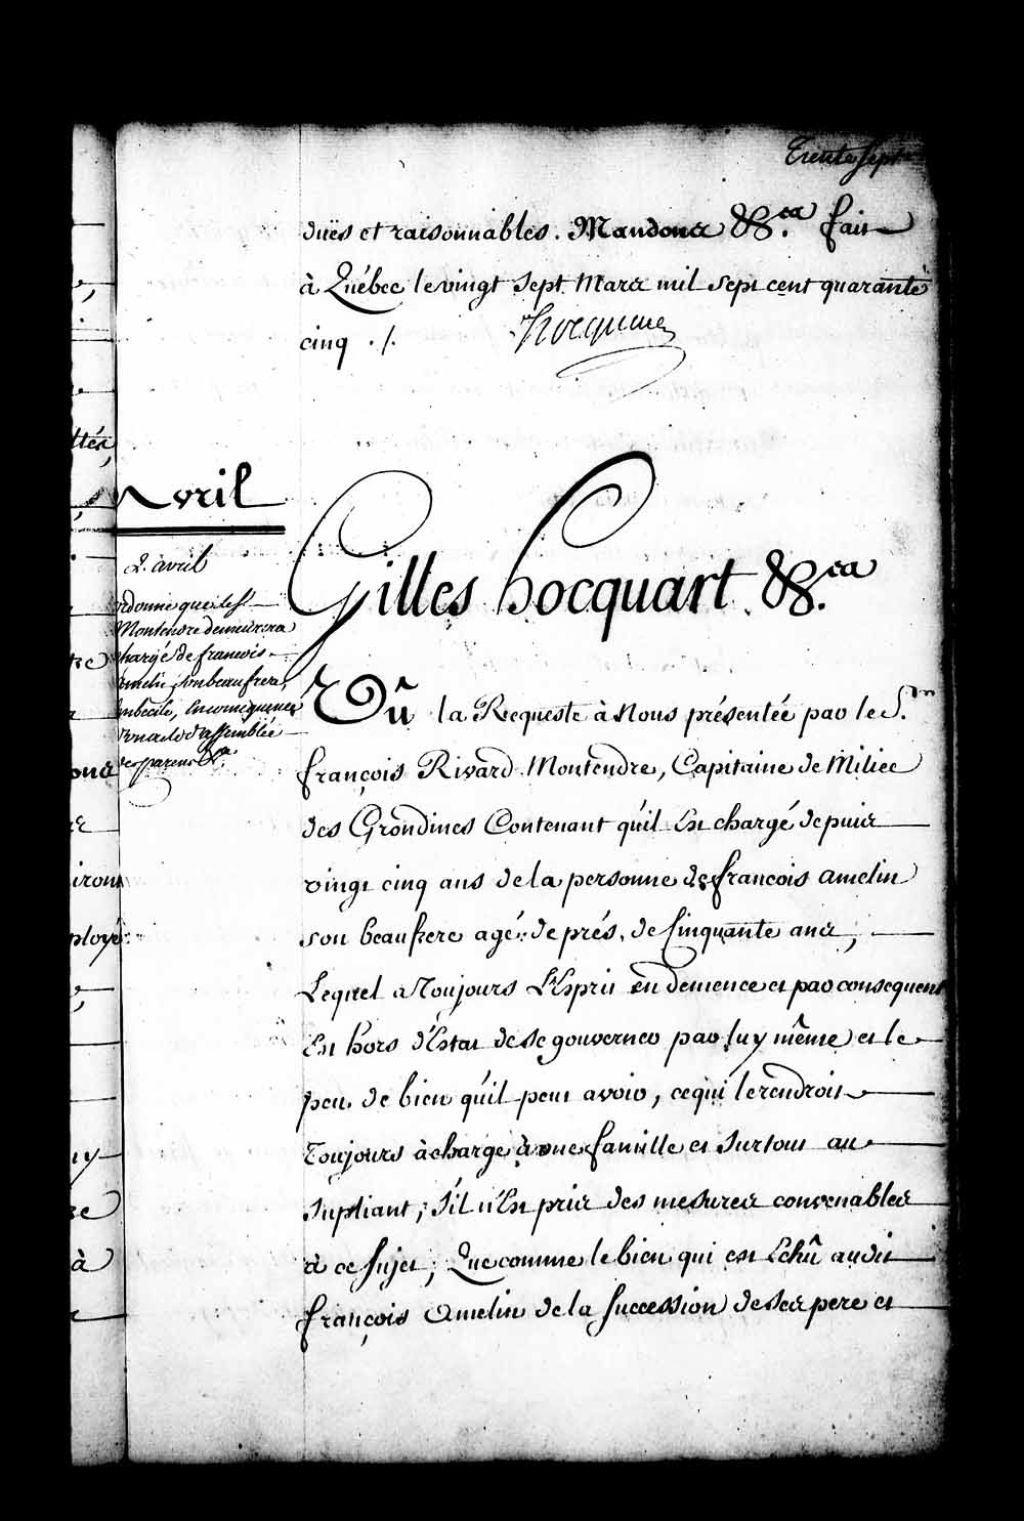 Trente Sept
duës et raisonnables. Mandons &ca. fait
à Québec le vingt Sept Mars mil sept cent quarante
cinq ./. Hocquart
Avril
2. avril
ordonne que le Sr
Montendre demeurera
chargé de francois
amelin son beaufrere,
imbecile, en consequence
de l'assemblée
des parens &ca.
Gilles hocquart &ca.
Vû la Requeste à Nous présentée par le S.
françois Rivard Montendre, Capitaine de Milice
des Grondines Contenant qu'il Est chargé depuis
vingt cinq ans de la personne de françois amelin
son beaufrere agé de prés de Cinquante ans,
Lequel a Toujours L'Esprit en demence et par consequent
Est hors d'Estat de se gouverner par luy même et le
peu de bien qu'il peut avoir, ce qui le rendroit
Toujours à charge à une famille et surtout au
supliant, S'il n'Est pris des mesures convenables
à ce sujet; Que comme le bien qui est Echû audit
françois Amelin de la Succession de ses pere et